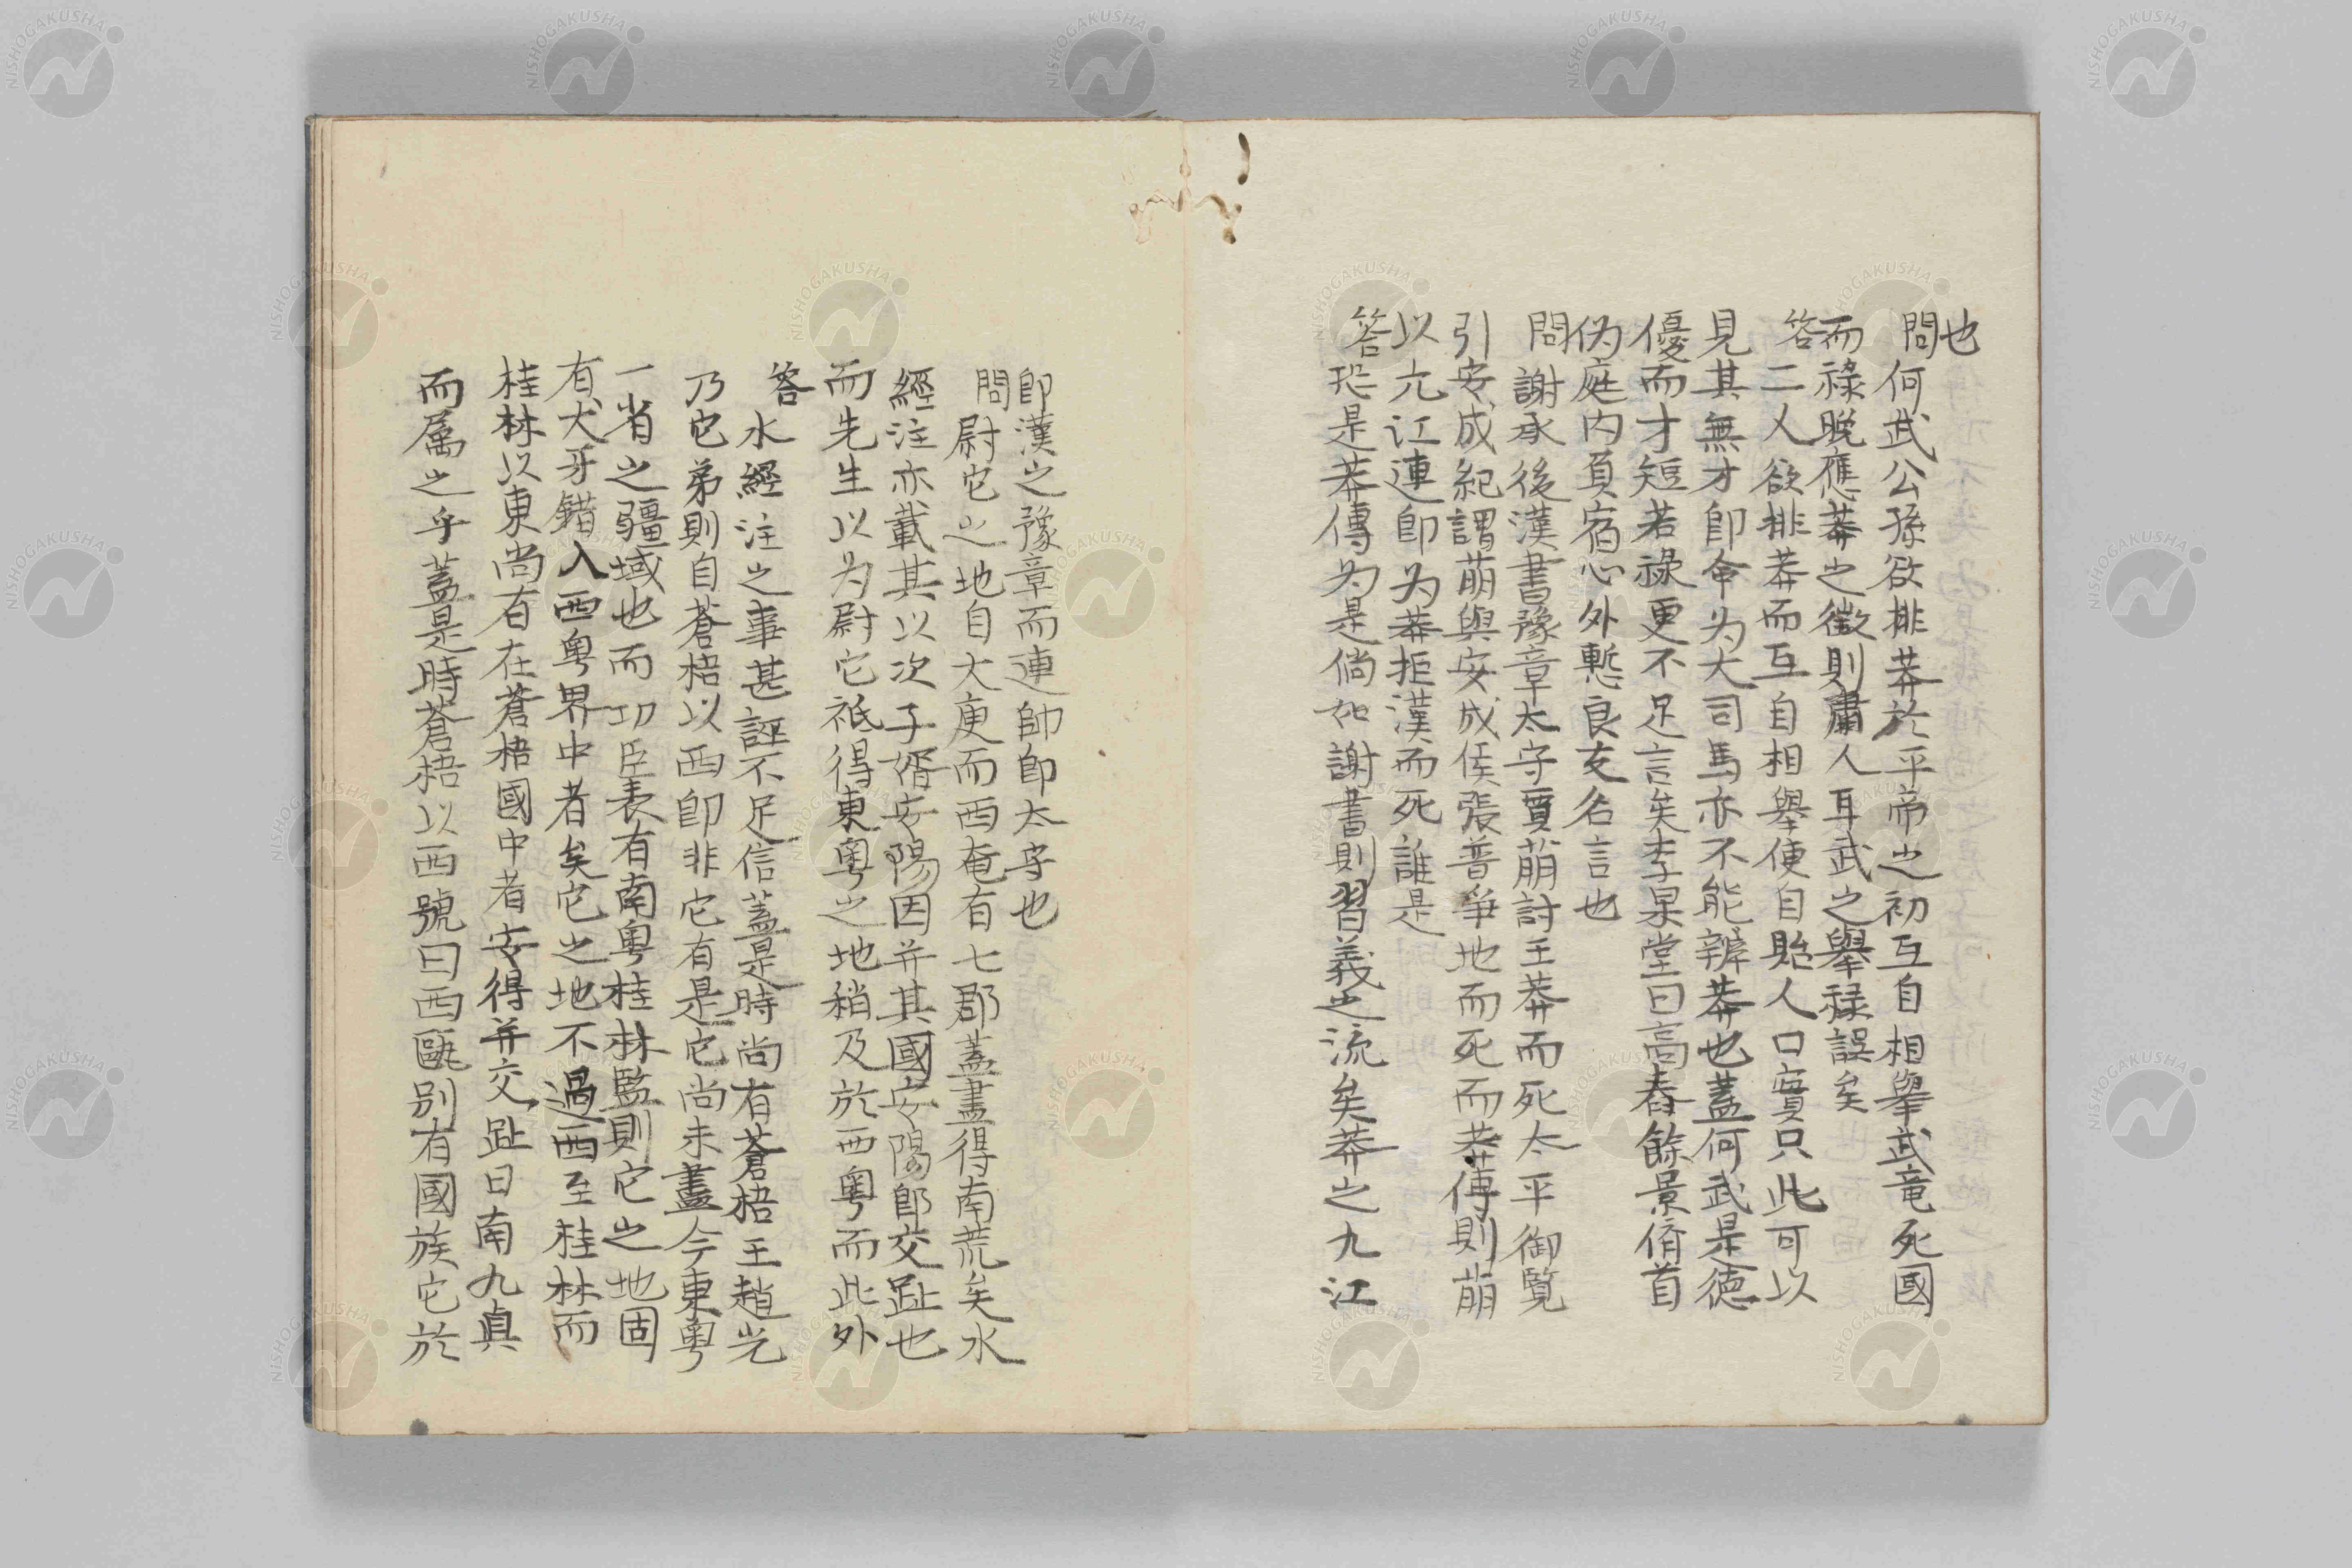 也
問何武公孫欲排莽於平帝之初互自相舉武竟死國
而祿晚應莽之徵則庸人耳武之舉祿誤矣
答二人欲排莽而互自相舉使自貽人口實只此可以
見其無才卽命为大司馬亦不能辦莽也蓋何武是德
優而才短若祿更不足言矣李杲堂曰高舂餘景脩首
伪庭内負宿心外慙良友名言也
問謝承後漢書豫章太守賈萠討王莽而死太平御覧
引安成紀謂萠與安成侯張普爭地而死而莽傳則萠
以九江連卽为莽拒漢而死誰是
答恐是莽傳为是倘如謝書則翟義之流矣莽之九江
卽漢之豫章而連帥卽太守也
問尉它之地自大庾而西奄有七郡蓋盡得南荒矣水
經注亦載其以次子壻安陽因并其國安陽郎交趾也
而先生以为尉它祗得東粵之地稍及於西粵而此外
答水經注之事甚誣不足信蓋是時尚有蒼梧王趙光
乃它弟則自蒼梧以西卽非它有是它尚未盡今東粵
一省之疆域也而功臣表有南粵桂林監則它之地固
有犬牙錯入西粵界中者矣它之地不過西至桂林而
桂林以東尚有在蒼梧國中者安得并交趾日南九真
而属之乎蓋是時蒼梧以西號曰西甌别有國族它於